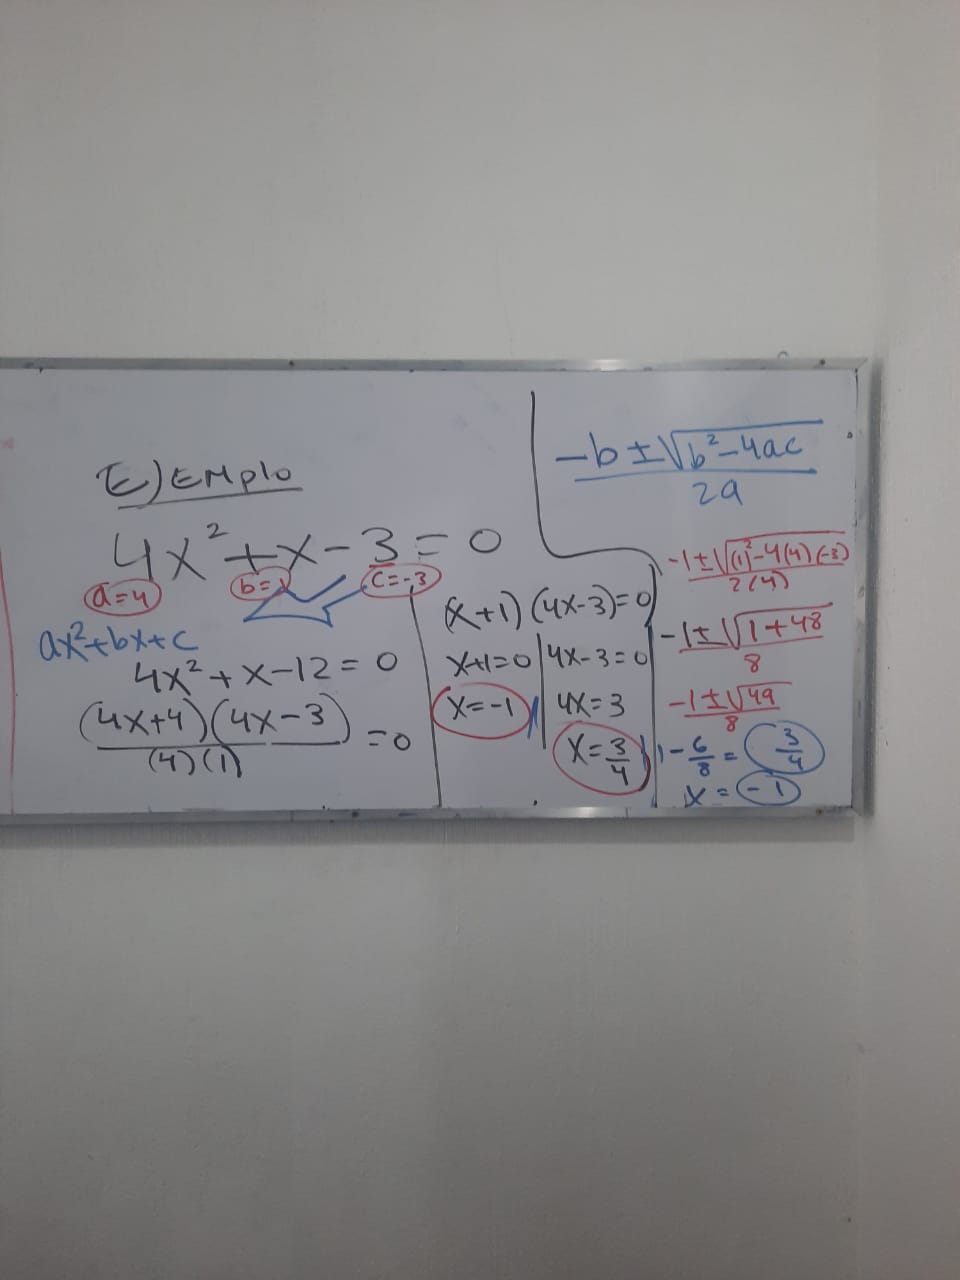 EJEMPLO
4x² + x - 3 = 0
a=4 b=1 c=-3
ax²+bx+c
4x² + x - 12 = 0
(4x+4)(4x-3) = 0
(4)(1)
(x+1)(4x-3)=0
x+1=0 | 4x-3=0
x=-1 | 4x=3
x=3/4
-b±√b²-4ac
2a
-1±√(1)²-4(4)(-3)
2(4)
-1±√1+48
8
-1±√49
8
-6/8 = 3/4
x = -1